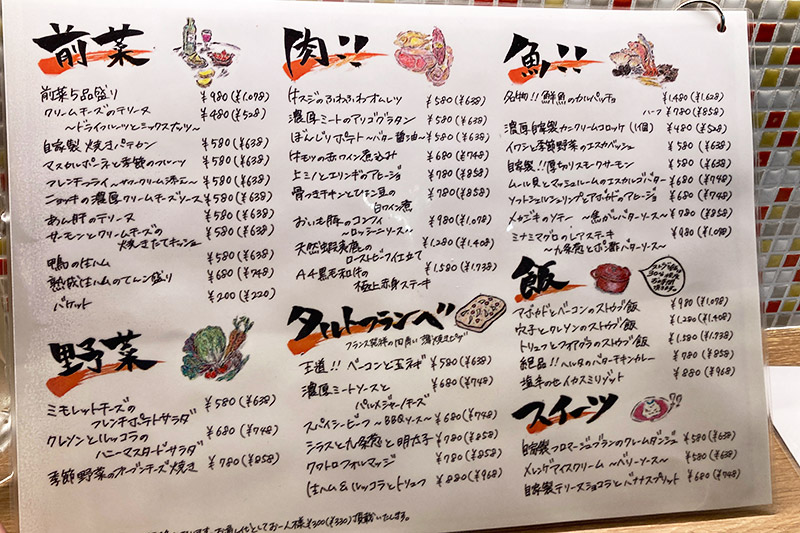 前菜
前菜5品盛り ¥980(¥1,078)
クリームチーズのテリーヌ ¥480(¥528)
〜ドライフルーツとミックスナッツ〜
自家製 焼きパテカン ¥580(¥638)
マスカルポーネと季節のフルーツ ¥580(¥638)
フレンチフライ〜サワークリーム添え〜 ¥580(¥638)
ニョッキの濃厚クリームチーズソース ¥580(¥638)
あん肝のテリーヌ ¥580(¥638)
サーモンとクリームチーズの
焼きたてキッシュ ¥580(¥638)
鴨の生ハム ¥580(¥638)
熟成生ハムのてんこ盛り ¥680(¥748)
バケット ¥200(¥220)
野菜
ミモレットチーズの
フレンチポテトサラダ ¥580(¥638)
クレソンとルッコラの
ハニーマスタードサラダ ¥680(¥748)
季節野菜のオーブンチーズ焼き ¥780(¥858)
肉!!
牛スジのふわふわオムレツ ¥580(¥638)
濃厚ミートのアリゴグラタン ¥580(¥638)
ぼんじりポテト〜バター醤油〜 ¥580(¥638)
牛モツの赤ワイン煮込み ¥680(¥748)
上ミノとエリンギのアヒージョ ¥780(¥858)
骨つきチキンとひよこ豆の
白ワイン煮 ¥780(¥858)
おいも豚のコンフィ ¥980(¥1,078)
〜ロッシーニソース〜
天然蝦夷鹿の
ローストビーフ仕立て ¥1,280(¥1,408)
A4黒毛和牛の
極上赤身ステーキ ¥1,580(¥1,738)
タルトフランベ
フランス発祥の四角い薄焼きピザ
王道!! ベーコンと玉ネギ ¥580(¥638)
濃厚ミートソースと
パルメジャーノチーズ ¥680(¥748)
スパイシービーフ 〜BBQソース〜 ¥680(¥748)
シラスと九条葱と明太子 ¥780(¥858)
クワトロフォルマッジ ¥780(¥858)
生ハム&ルッコラとトリュフ ¥880(¥968)
魚!!
名物!! 鮮魚のカルパッチョ ¥1,480(¥1,628)
ハーフ ¥780(¥858)
濃厚自家製カニクリームコロッケ(1個) ¥480(¥528)
イワシと季節野菜のエスカベッシュ ¥580(¥638)
自家製!!厚切りスモークサーモン ¥580(¥638)
ムール貝とマッシュルームのエスカルゴバター ¥680(¥748)
ソフトシェルシュリンプとアボカドのアヒージョ ¥680(¥748)
メカジキのソテー 〜焦がしバターソース〜 ¥780(¥858)
ミナミマグロのレアステーキ ¥980(¥1,078)
〜九条葱とポン酢バターソース〜
飯
アボカドとベーコンのストウブ飯 ¥980(¥1,078)
穴子とクレソンのストウブ飯 ¥1,280(¥1,408)
トリュフとフォアグラのストウブ飯 ¥1,580(¥1,738)
絶品!! ヘルタのバターチキンカレー ¥780(¥858)
塩辛のセイカスミリゾット ¥880(¥968)
スイーツ
自家製フロマージュブランのクレームダンジュ ¥580(¥638)
メレンゲアイスクリーム 〜ベリーソース〜 ¥580(¥638)
自家製テリーヌショコラとバナナスプリット ¥680(¥748)
お通し代としてお一人様¥300(¥330)頂戴いたします。